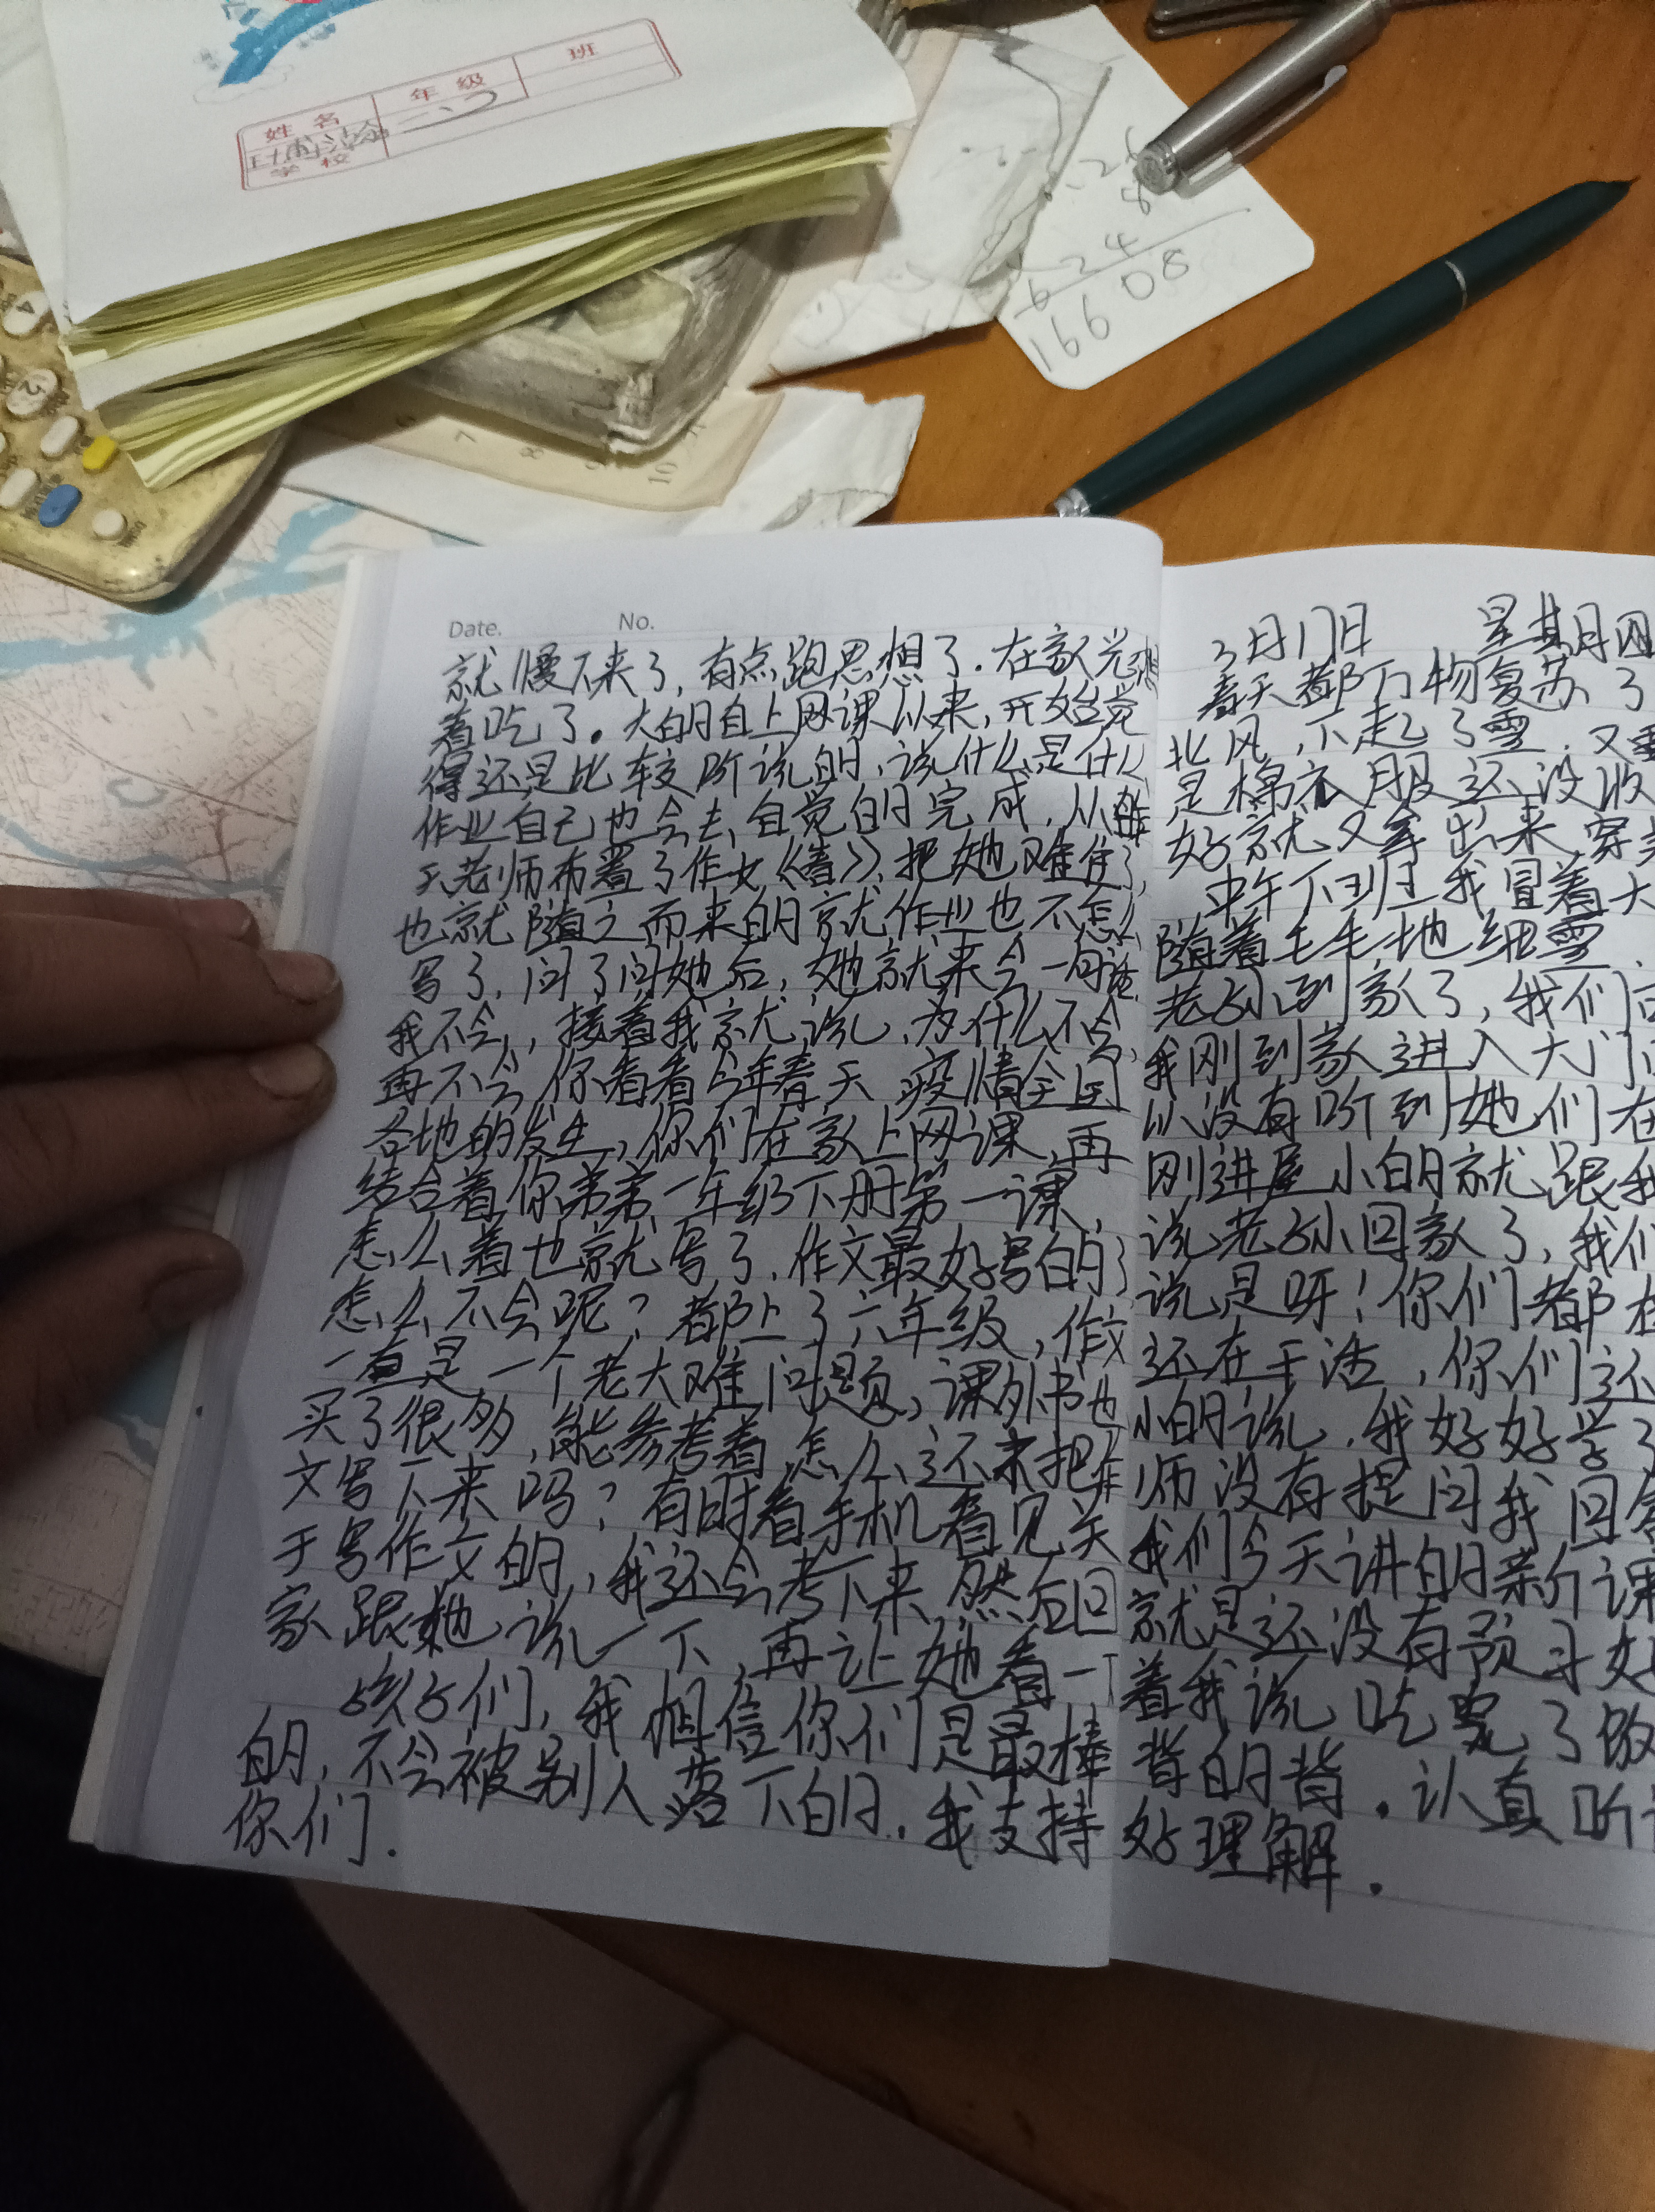 姓 名
年 级
班
学 校
二
8
6 2 4
16608
7
8
9
10
Date.
No.
就慢下来了，有点跑思想了.在家光
着吃了。大的自上网课以来，开始觉
得还是比较听说的，说什么是什么
作业自己也会去自觉的完成，从
天老师布置了作文《春》，把她难住了，
也就随之而来的就作业也不怎么
写了，问了问她后，她就来会一句话
我不会，接着我就说，为什么不会，
再不会你看看今年春天疫情全国
各地的发生，你们在家上网课，再
结合着你弟弟一年级下册第一课，
怎么着也就写了，作文最好写的了
怎么不会呢？都上了六年级，作文
一直是一个老大难问题，课外书也
买了很多，能参考着怎么还未把作
文写下来吗？有时看手机看见关
于写作文的，我还会考下来，然后回
家跟她说一下，再让她看一下
孩子们，我相信你们是最棒
的，不会被别人落下的，我支持
你们.
3月17日 星期四
春天都万物复苏了
北风，下起了雪，又
是棉衣服还没收
好就又拿出来穿
中午下班我冒着大
随着毛毛地细雪
老师到家了，我们
我刚到家进入大门
以没有听到她们在
刚进屋小的就跟我
说老师回家了，我们
说是呀！你们都
还在干活，你们还
小的说，我好好学了
师没有提问我回答
我们今天讲的新课
就是还没有预习好
着我说吃完了饭
背的背.认真听
处理解.